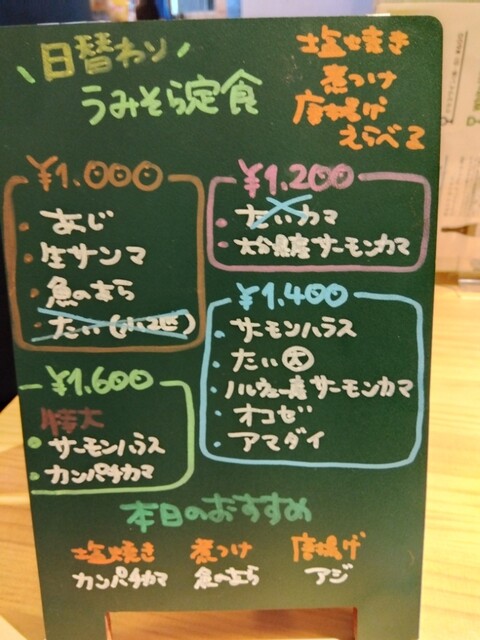 日替わり
うみそら定食
塩焼き
煮つけ
唐揚げ
えらべる
¥1.000
・あじ
・生サンマ
・魚のあら
・たい(小2匹)
¥1.200
・たいカマ
・大分県産サーモンカマ
¥1.400
・サーモンハラス
・たい大
・ノルウェー産サーモンカマ
・オコゼ
・アマダイ
¥1.600
特大
・サーモンハラス
・カンパチカマ
本日のおすすめ
塩焼き 煮つけ 唐揚げ
カンパチカマ 魚のあら アジ